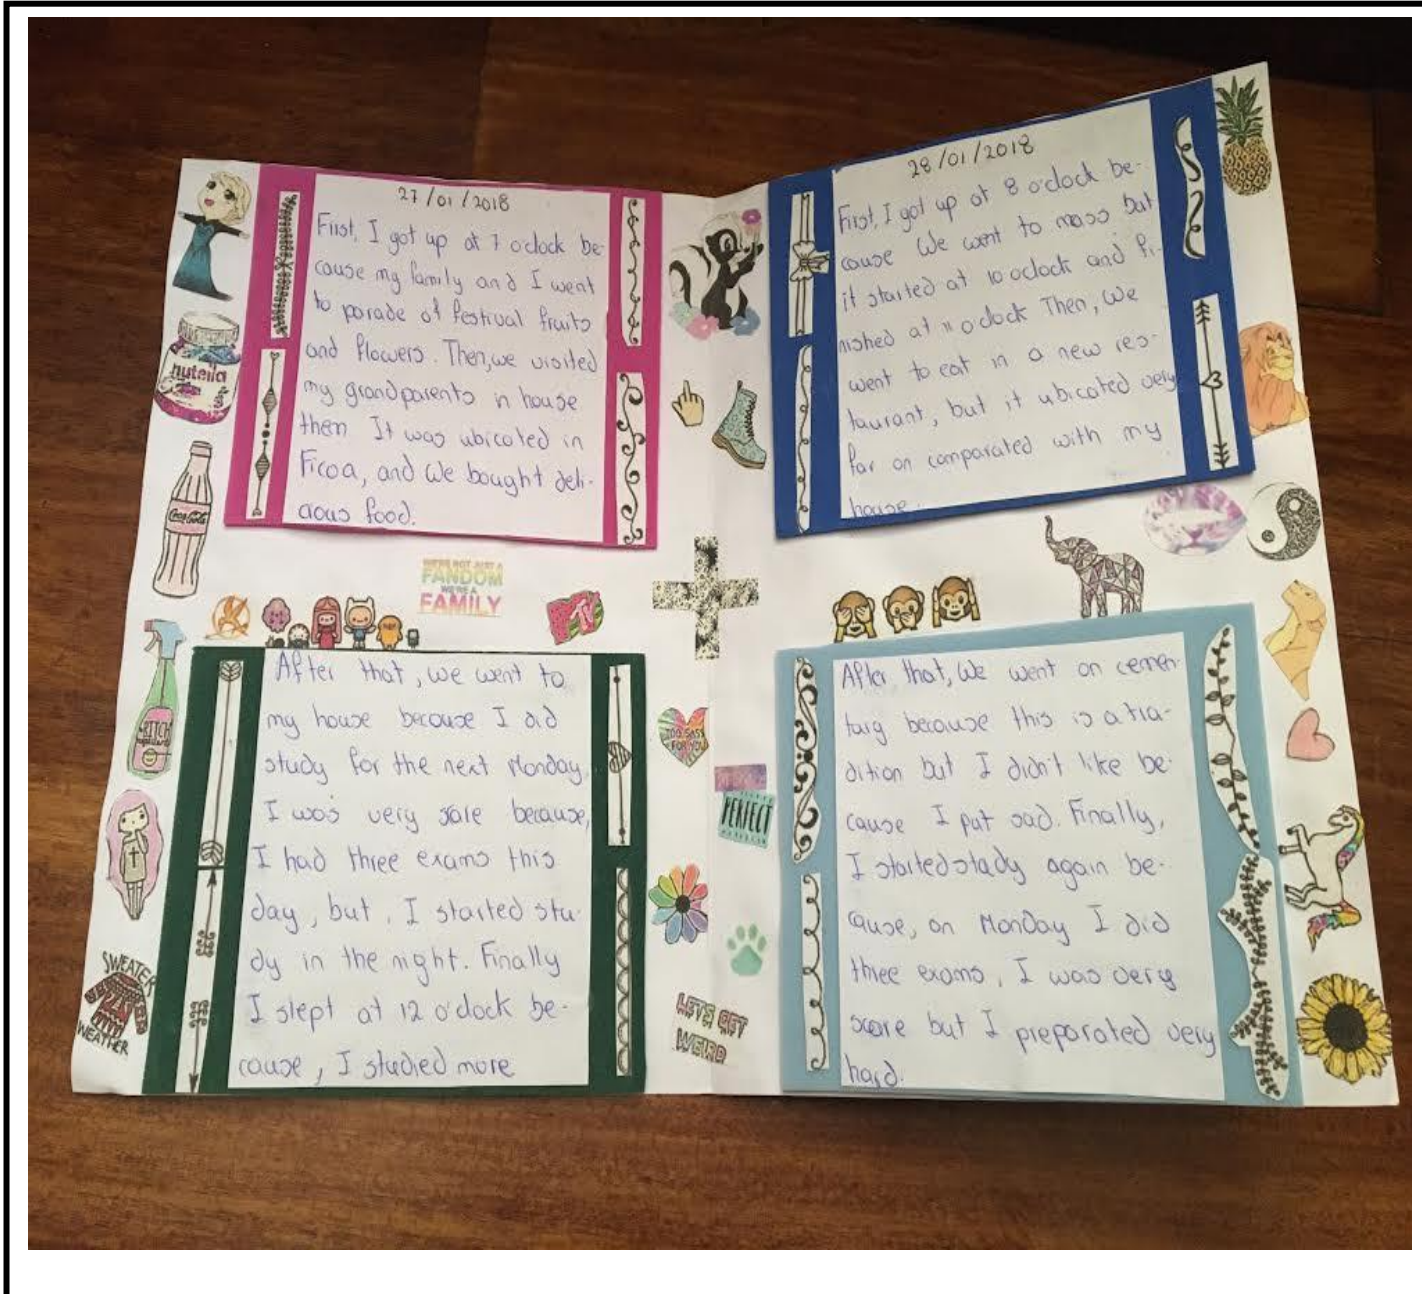 27/01/2018
First, I got up at 7 o'clock be-
cause my family and I went
to parade of festival fruits
and flowers. Then, we visited
my grandparents in house
then It was ubicated in
Ficoa, and We bought deli-
cious food.
After that, we went to
my house because I did
study for the next Monday.
I was very sare because,
I had three exams this
day, but, I started stu-
dy in the night. Finally
I slept at 12 o'clock be-
cause, I studied more
28/01/2018
First, I got up at 8 o'clock be-
cause We went to mass but
it started at 10 oclock and fi-
nished at 11 o'clock Then, We
went to eat in a new res-
taurant, but it ubicated very
far on comparated with my
house.
After that, We went on cemen-
tary because this is a tra-
dition but I didn't like be-
cause I put sad. Finally,
I started stady again be-
cause, on Monday I did
three exams, I was very
score but I preparated very
hard.
nutella
Coca-Cola
WE'RE NOT JUST A
FANDOM
WE'RE A
FAMILY
TV
BITCH
TOO SASSY
FOR YOU
PERFECT
SWEATER
WEATHER
LET'S GET
WEIRD